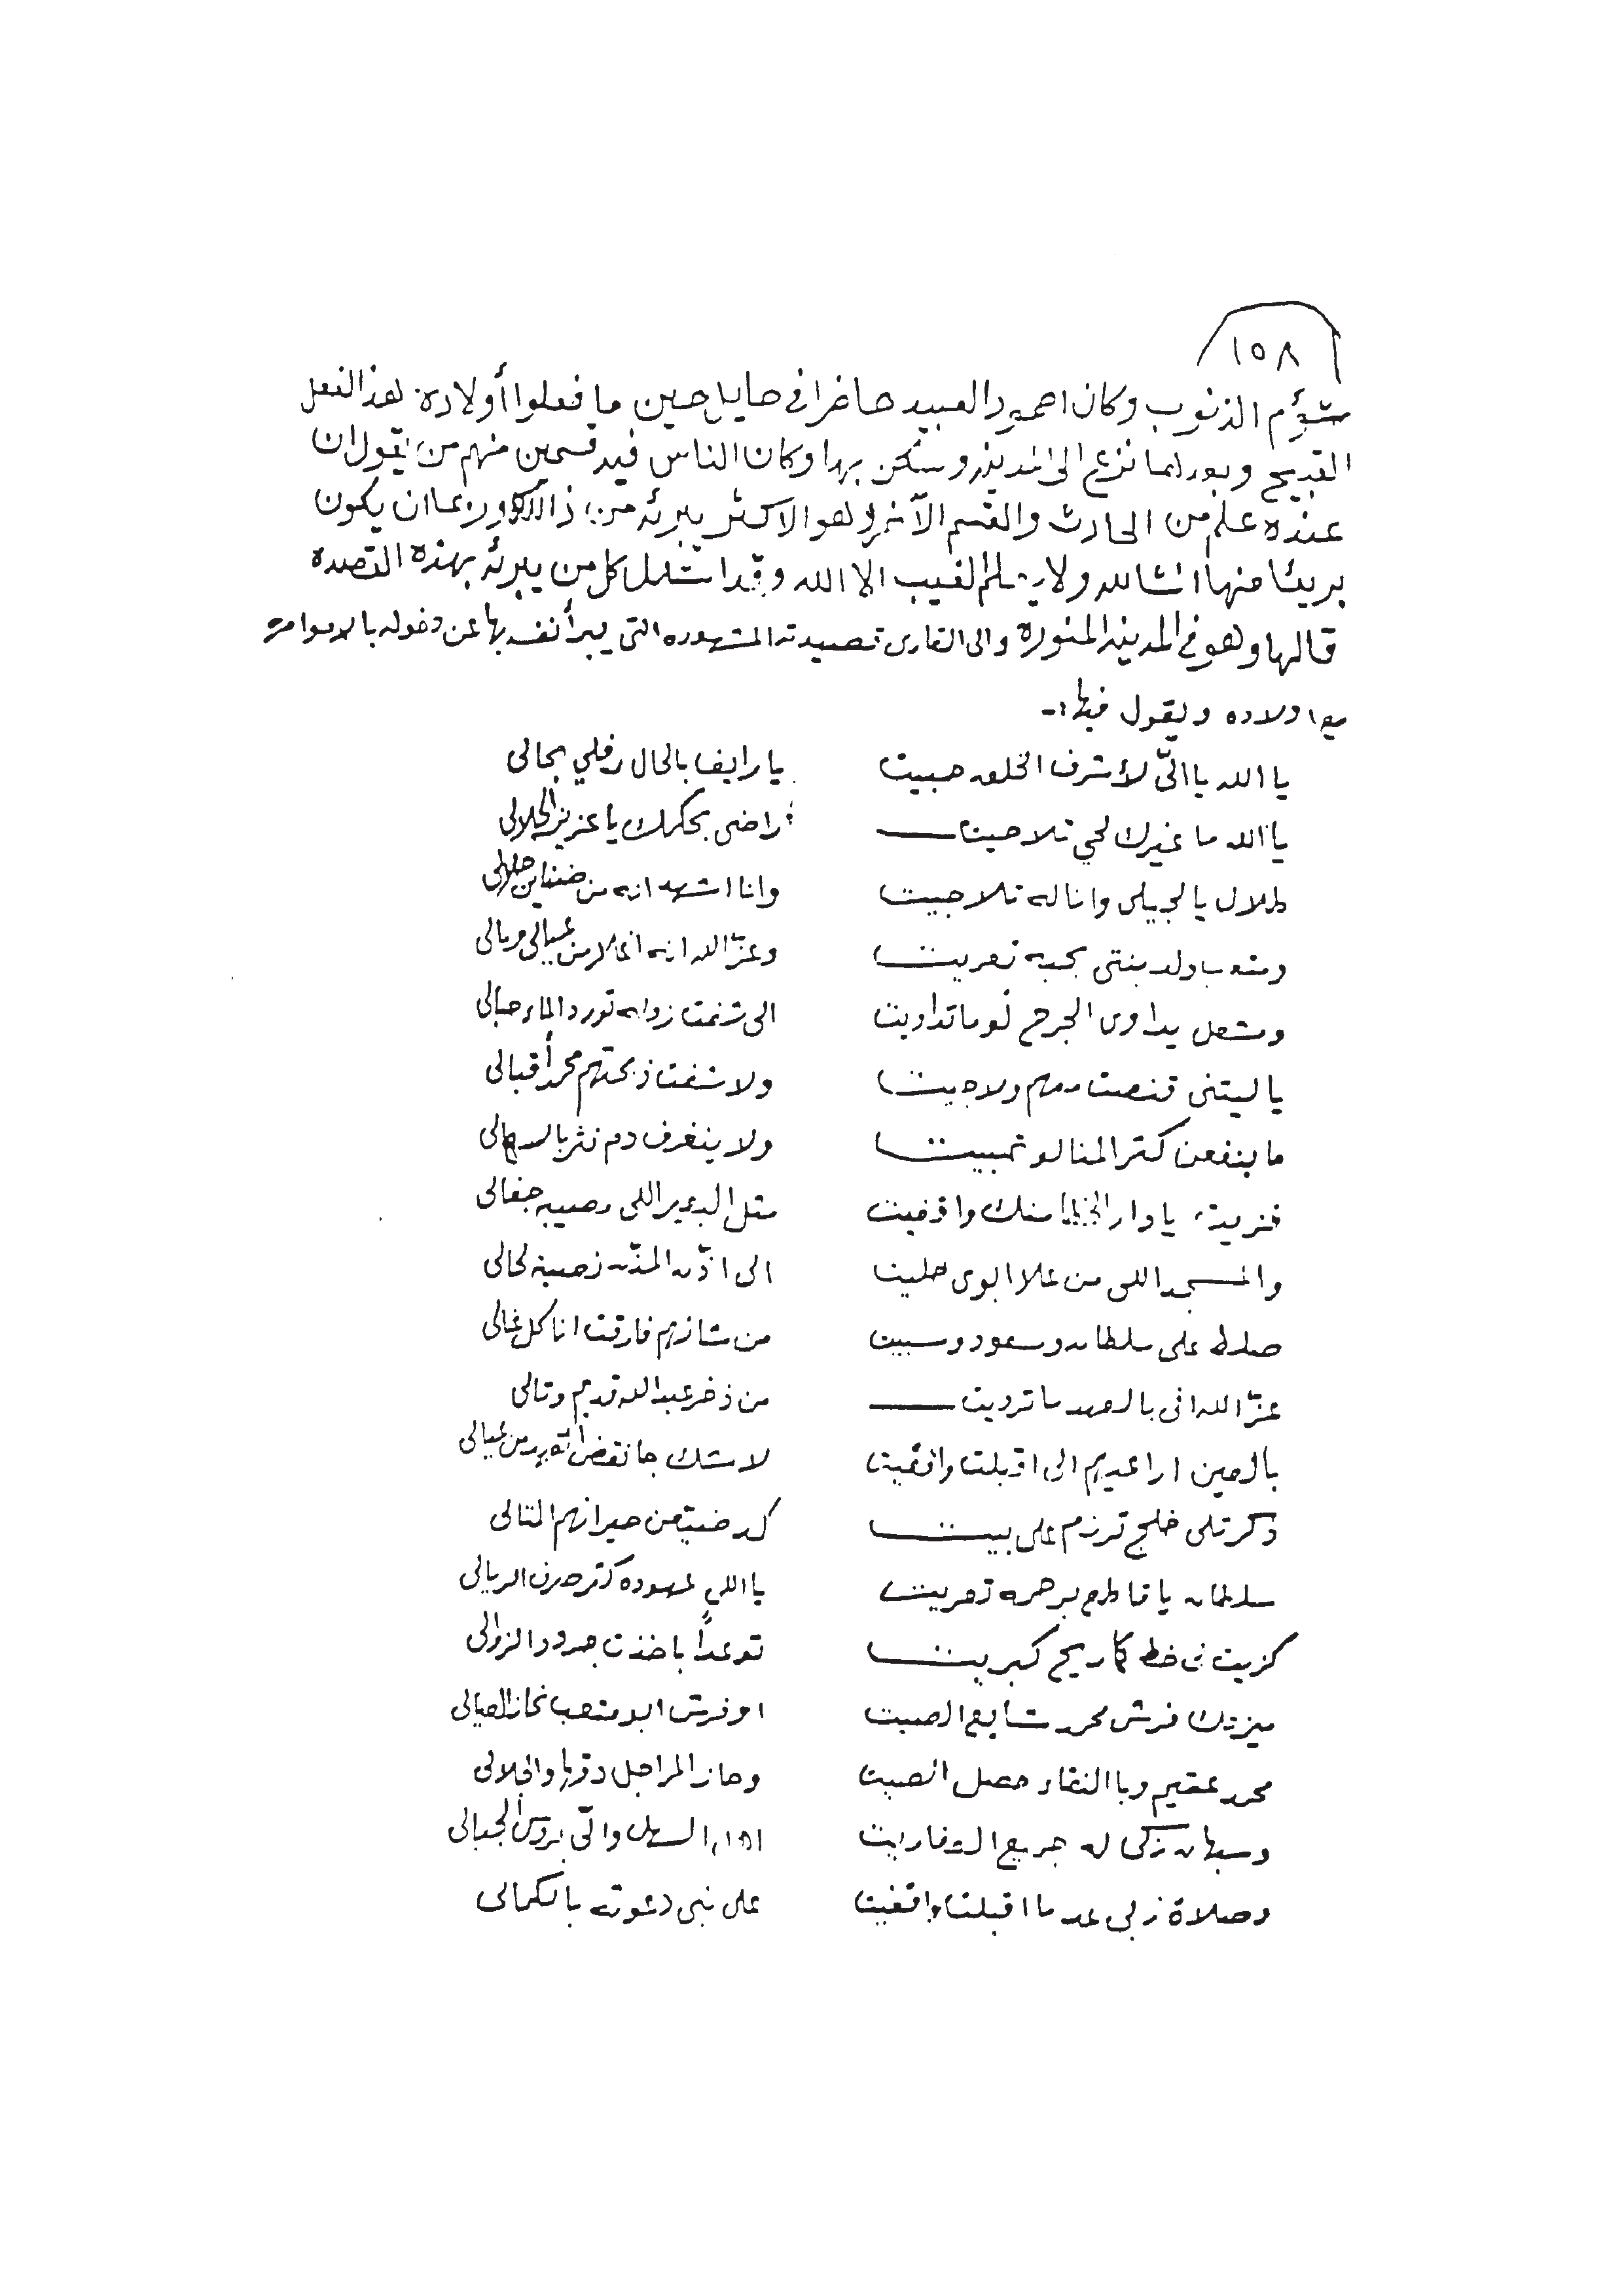 ١٥٨
شؤم الذنوب وكان احمود العبيد حاضرا في حايل حين ما فعلوا أولاده هذ الفعل
القبيح وبعدها نزح الى المدينه وسكن بها وكان الناس فيه قسمين منهم من يقول ان
عنده علم من الحادث والقسم الآخر وهو الاكثر يبرئه من ذالك وربما ان يكون
بريئا منها انشالله ولا يعلم الغيب الا الله وقد استدل كل من يبرئه بهذه القصده
قالها وهو في المدينه المنوره والى القارى قصيدته المشهوره التى يبرأ نفسه بها عن دخوله بالامؤامره
مع اولاده ويقول فيها :-
يا الله يا الىّ لأشرف الخلقه حبيت يا رايف بالحال رفلي بحالى
يا الله ما غيرك لحي تلاحيت راضى بحكمك يا عزيز الجلالى
طلال يالجيلى وانا له تلاجيت وانا اشهد انه من ضنا بن هلالى
ومتعب ولد بنتى بحبه تعريت وعزّ الله انه اغلا من عيالى ومالى
ومشعل يداوى الجرح لو ما تداويت الى شفت زوله تورد الماء حبالى
يا ليتنى قنصت معهم ولا جيت ولا شفت ذبحتهم محمد أقبالى
ما ينفعن كثر المنا لو تمنيت ولا ينغرف دم نثر بالسهالى
خزيت يا دار الخطا منك واقفيت مثل البعير اللى مصيبه جفالى
والمسجد اللى من علا ابوى صليت الى اذّن المذّن نصيته لحالى
صلط على سلطان وسعود وسبيت من شانهم فارقت انا كل غالى
عزّ الله انى بالعهد ما ترديت من ذخر عبدالله قديم وتالى
بالعين اراعيهم الى اقبلت واقفيت لا شك جا نقض من عيالى
ذكرتلى خلج ترزم على بيت كد ضيعن حيرانهم المتالى
سلطان يا قاطع برحمه تعريت يا اللى عهوده كثر صرف الريالى
كزيت لى خط كما ريح كبريت توعداً باخذت حدود الزوالى
ميزتك فرش محمد شايع الصيت او فرش ابو متعب
محمد عقيم وبا النقاء حصل الصيت وحاز المراجل دقها والجلالى
وسبهان زكى له جميع العفاريت السهل والىّ بروس الجبالى
وصلاة ربى عد ما اقبلت واقفيت على نبى دعوته بالكمالى